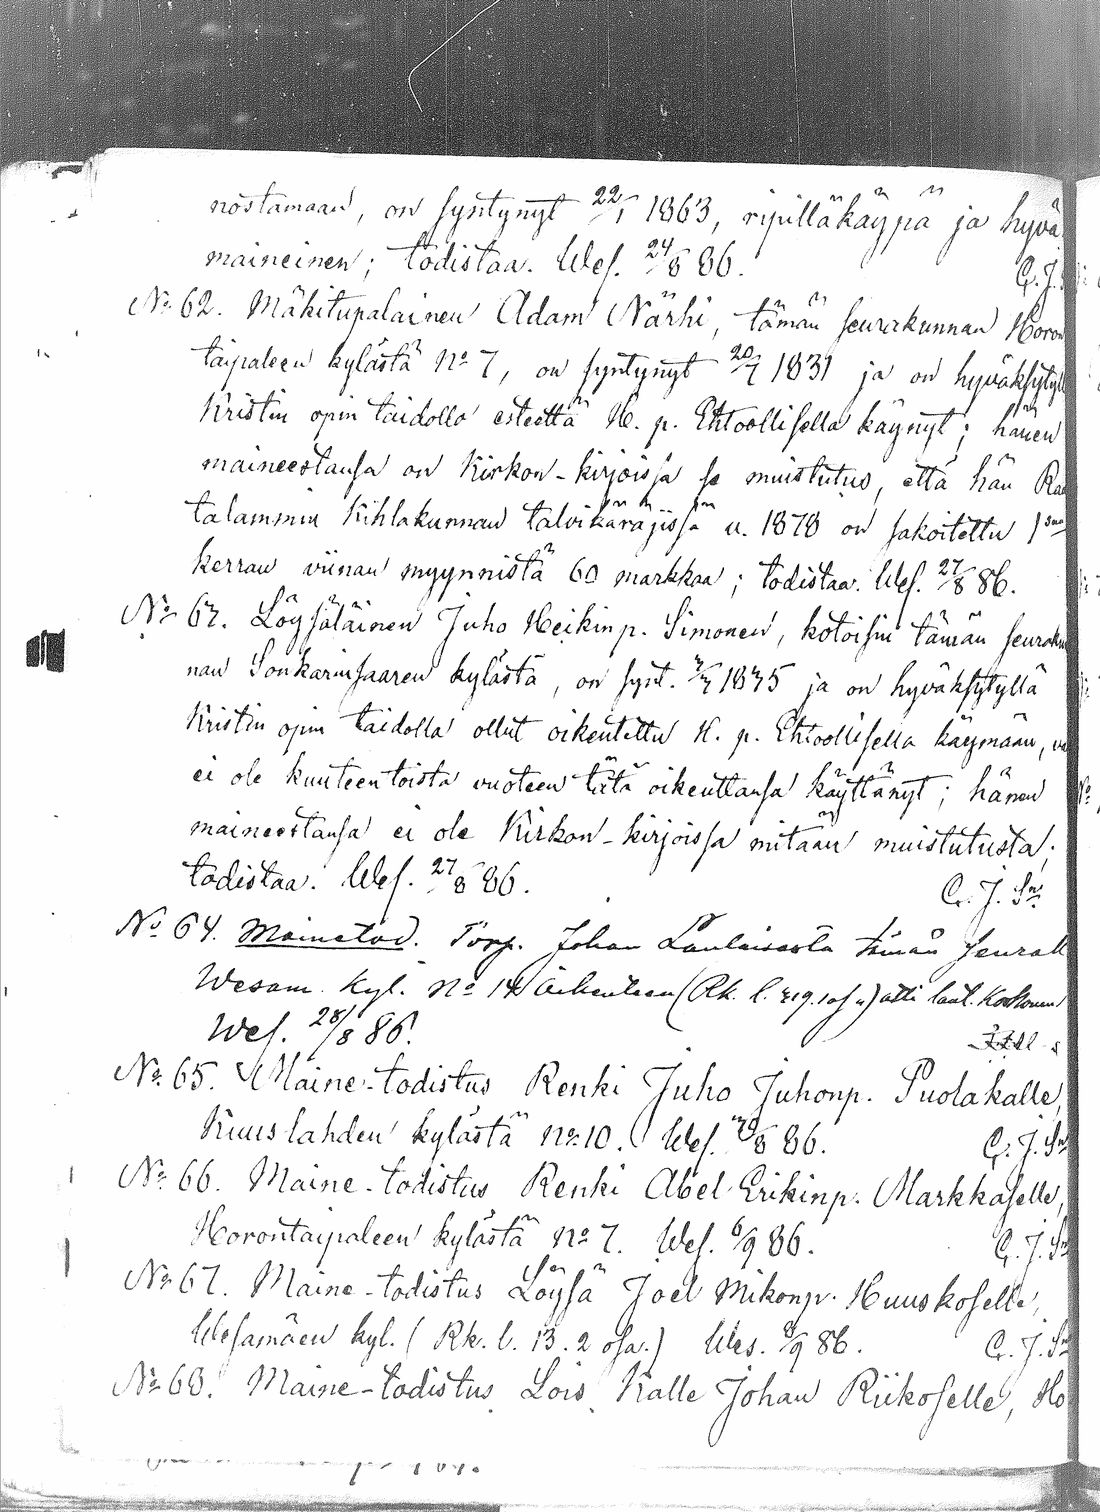 nostamaan, on syntynyt 22/1 1863, ripilläkäypä ja hyvä
maineinen; todistaa. Wes. 24/8 86. C. J.
No 62. Mäkitupalainen Adam Närhi, tämän seurakunnan Horon
taipaleen kylästä No 7, on syntynyt 20/7 1831 ja on hyväksytyll
Kristin opin taidolla esteettä H. p. Ehtoollisella käynyt; hänen
maineestansa on Kirkon-kirjoissa se muistutus, että hän Rau
talammin Kihlakunnan talvikäräjissä v. 1878 on sakoitettu 1
kerran viinan myynnistä 60 markkaa; todistaa. Wes. 27/8 86.
No 63. Löysäläinen Juho Heikinp. Simonen, kotoisin tämän seurakun
nan Sonkarinsaaren kylästä, on synt. ja on hyväksytyllä
Kristin opin taidolla ollut oikeutettu H. p. Ehtoollisella käymään,
ei ole kuuteentoista vuoteen tätä oikeuttansa käyttänyt; hänen
maineestansa ei ole Kirkon-kirjoissa mitään muistutusta;
todistaa. Wes. 27/8 86. C. J. Sn
No 64. Mainetod. Torp. Johan Laulaisesta tämän seurak
Wesam. kyl. No 14 (Rk. l.
Wes. 28/8 86.
No 65. Maine-todistus Renki Juho Juhonp. Puolakalle,
Kuuslahden kylästä No 10. Wes. 86. C. J. Sn
No 66. Maine-todistus Renki Abel Erikinp. Markkaselle,
Horontaipaleen kylästä No 7. Wes. 6/9 86. C. J. Sn
No 67. Maine-todistus Löysä Joel Mikonp. Huuskoselle,
Wesamäen kyl. (Rk. l. 13. 2 osa.) Wes. 8/9 86. C. J. Sn
No 68. Maine-todistus Lois Kalle Johan Riikoselle, Ho